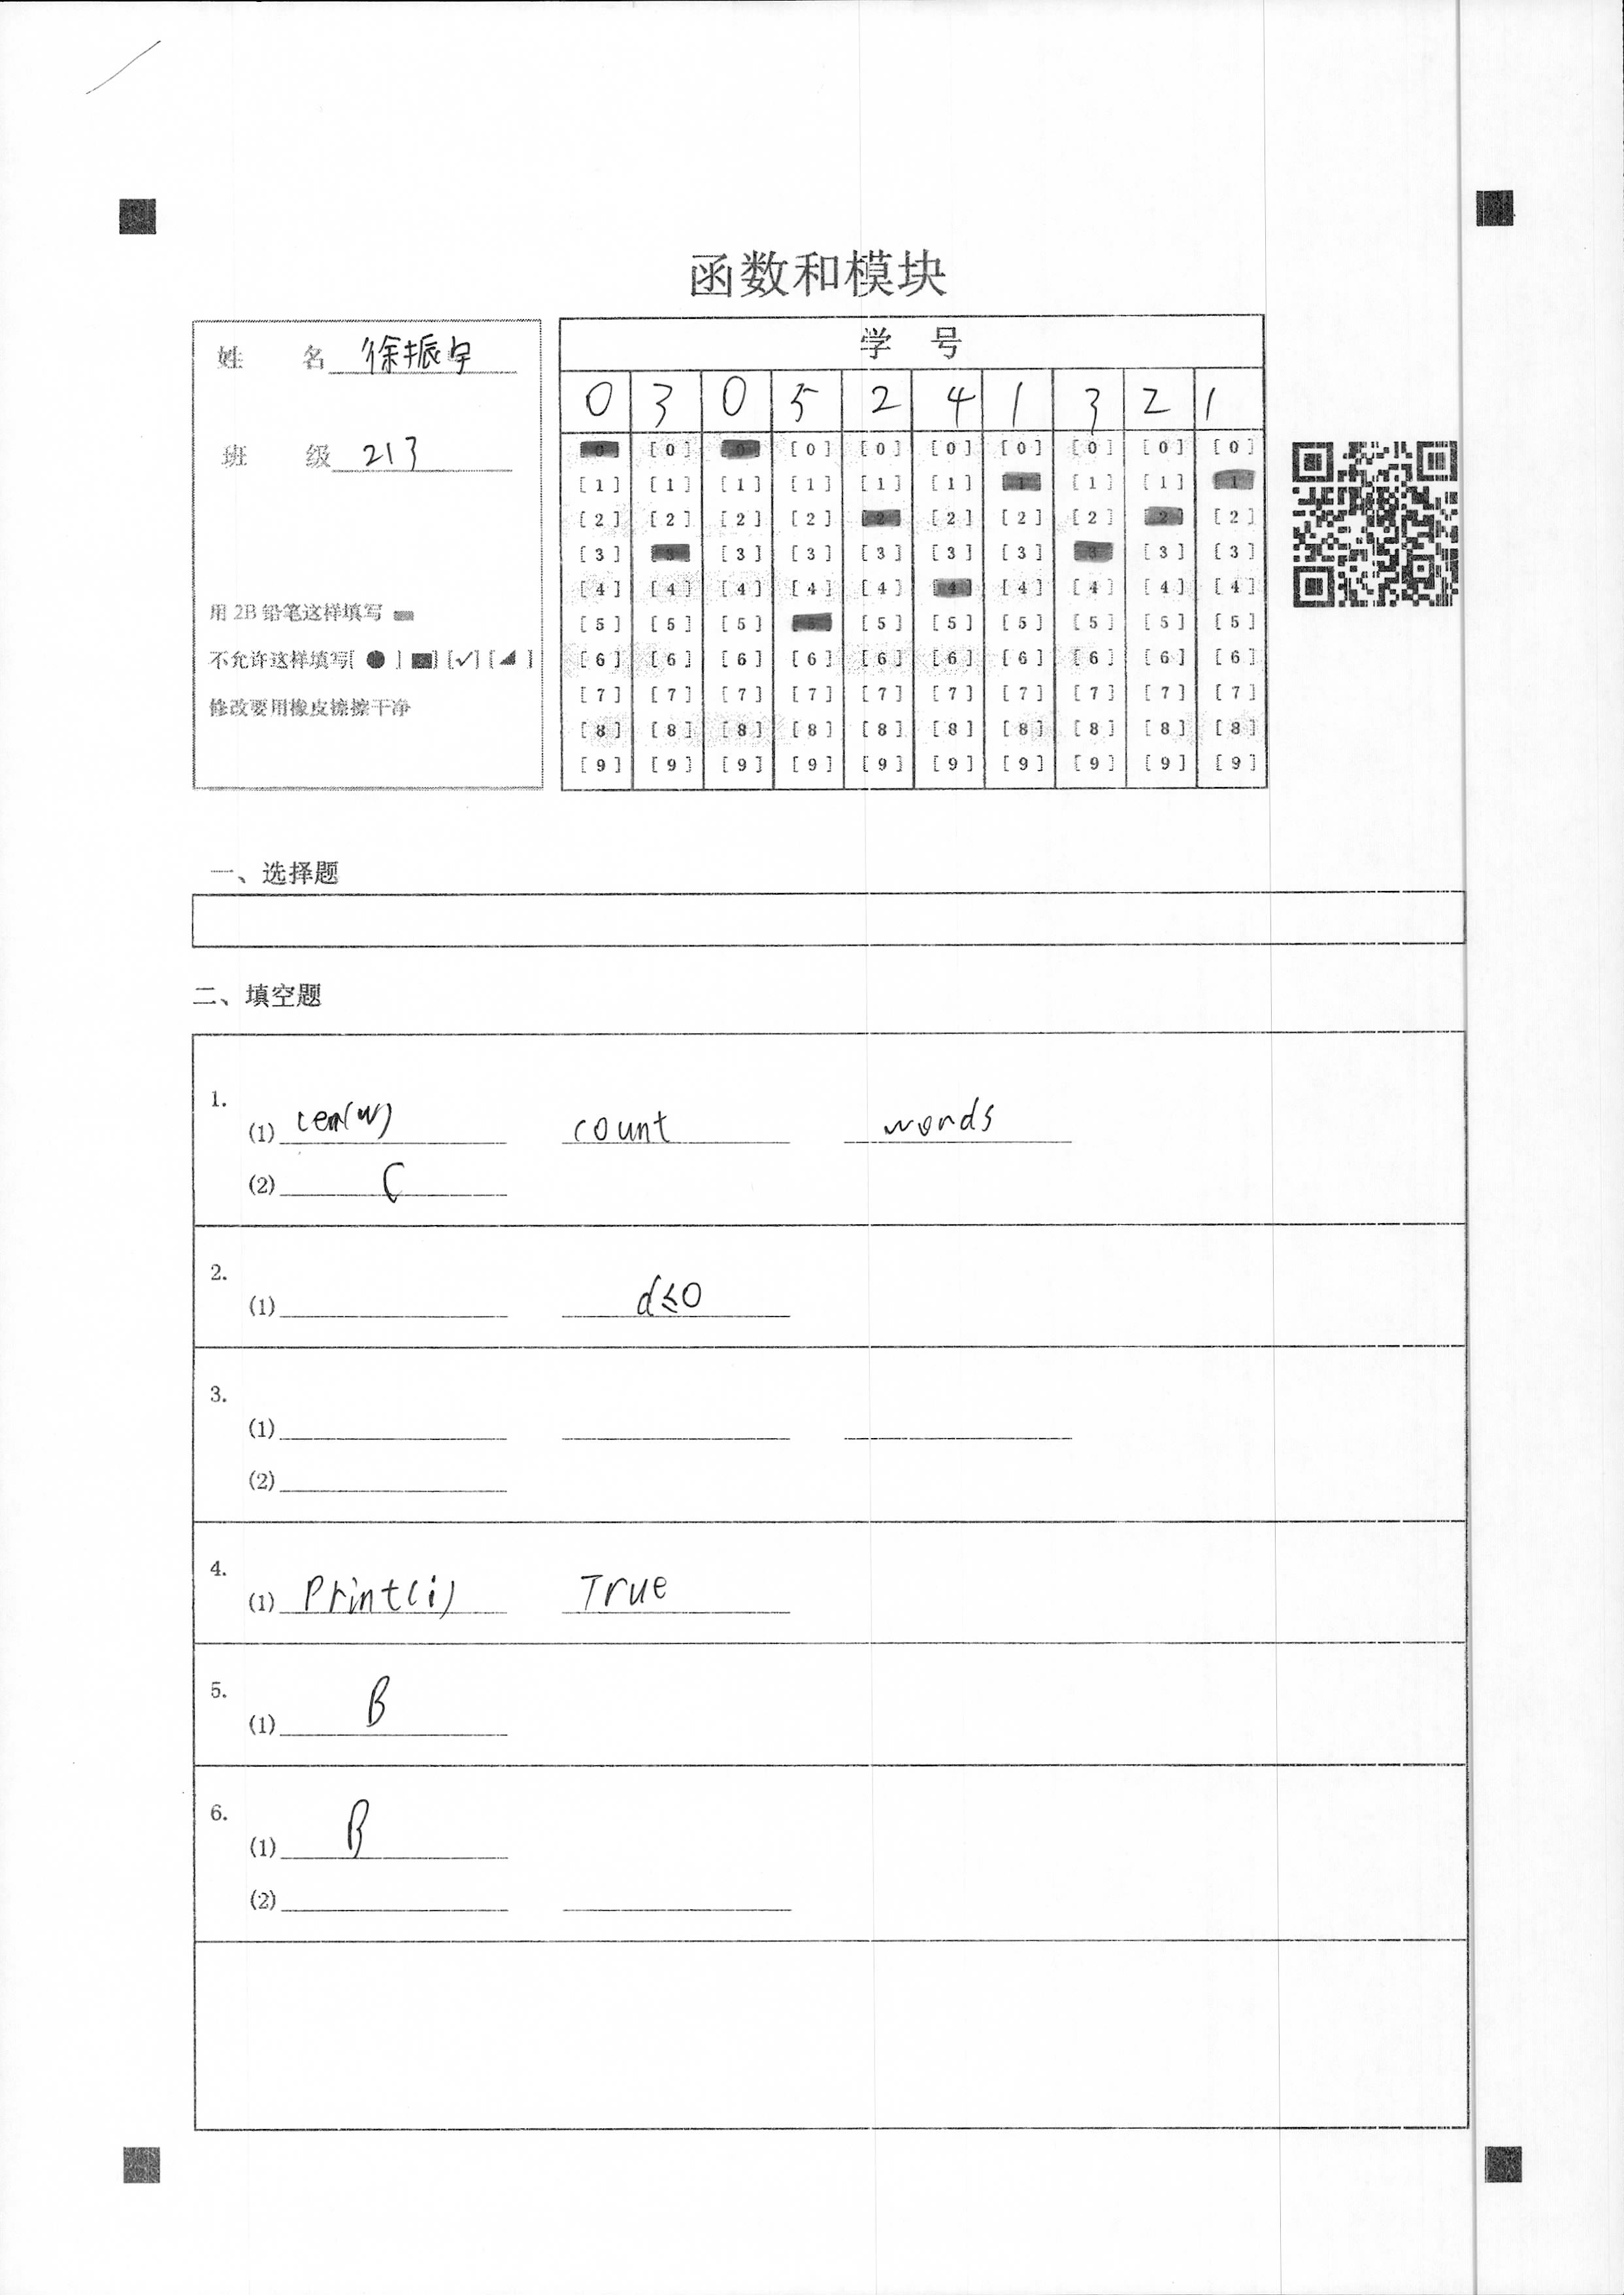 函数和模块
姓 名 徐振宇
班 级 213
用 2B 铅笔这样填写
不允许这样填写[ ● ] [■] [✓] [◢ ]
修改要用橡皮擦擦干净
学 号
0 3 0 5 2 4 1 3 2 1
[0] [0] [0] [0] [0] [0] [0] [0] [0] [0]
[1] [1] [1] [1] [1] [1] [1] [1] [1] [1]
[2] [2] [2] [2] [2] [2] [2] [2] [2] [2]
[3] [3] [3] [3] [3] [3] [3] [3] [3] [3]
[4] [4] [4] [4] [4] [4] [4] [4] [4] [4]
[5] [5] [5] [5] [5] [5] [5] [5] [5] [5]
[6] [6] [6] [6] [6] [6] [6] [6] [6] [6]
[7] [7] [7] [7] [7] [7] [7] [7] [7] [7]
[8] [8] [8] [8] [8] [8] [8] [8] [8] [8]
[9] [9] [9] [9] [9] [9] [9] [9] [9] [9]
一、选择题
二、填空题
1.
(1) len(w) count words
(2) C
2.
(1) d≤0
3.
(1)
(2)
4.
(1) Print(i) True
5.
(1) B
6.
(1) B
(2)